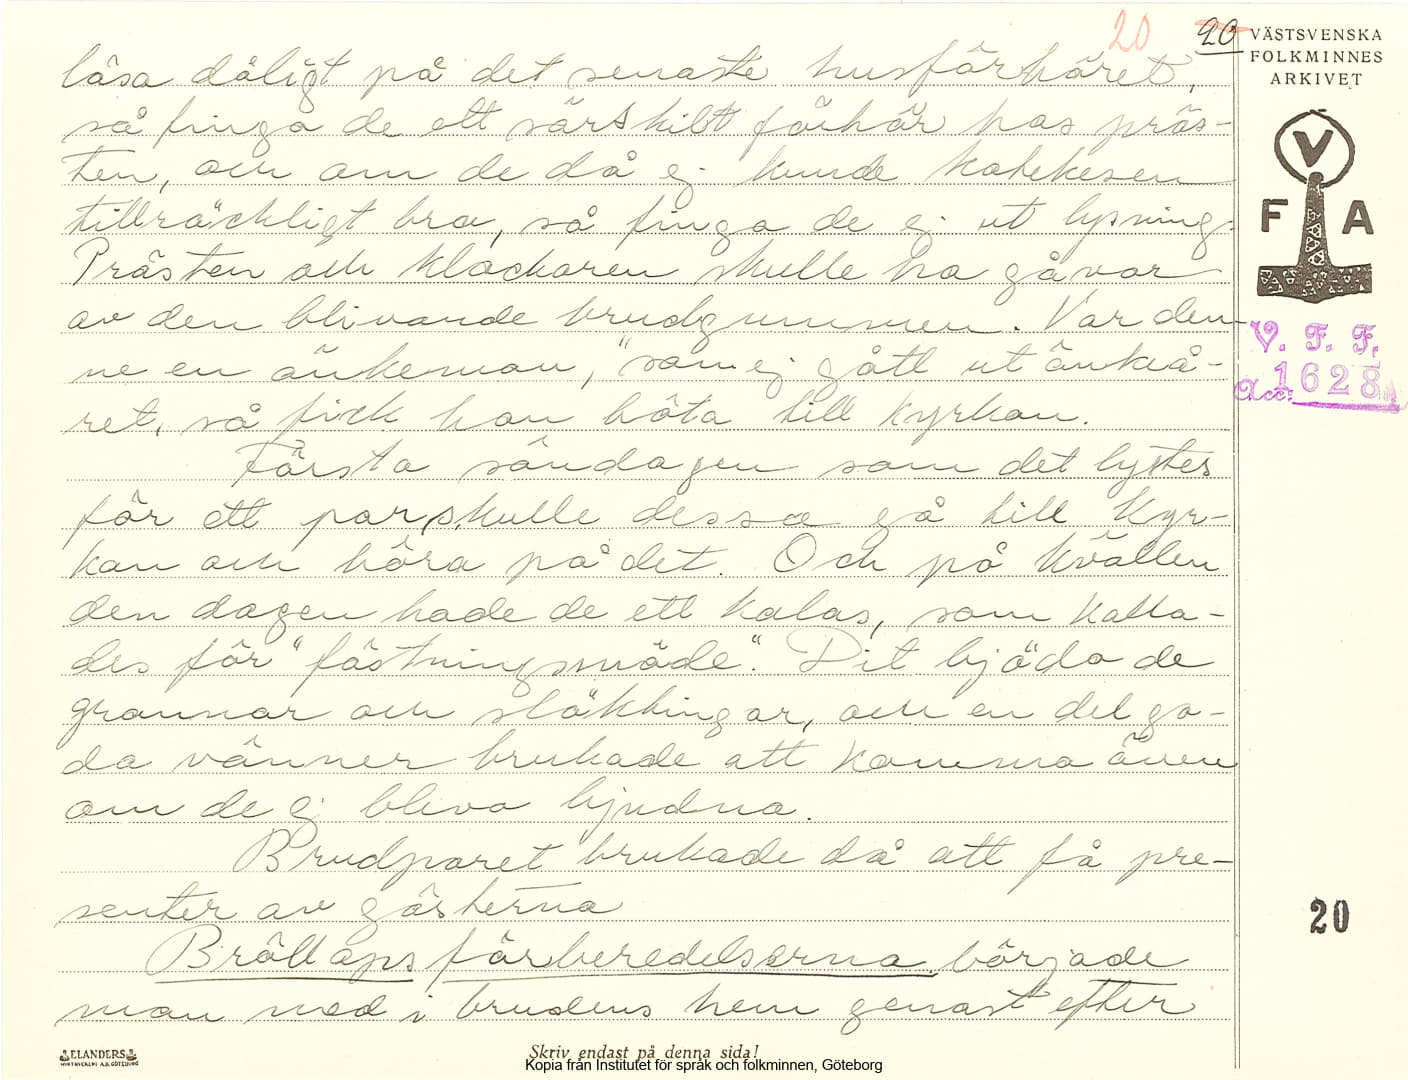 20 20
VÄSTSVENSKA
FOLKMINNES
ARKIVET
läsa dåligt på det senaste husförhöret,
så finga de ett särskilt förhör hos präs-
ten, och om de då ej kunde katekesen
tillräckligt bra, så finga de ej ut lysning.
Prästen och klockaren skulle ha gåvor
av den blivande brudgummen. Var den-
ne en änkeman, som ej gått ut änkeå-
ret, så fick han böta till kyrkan.
Första söndagen som det lystes
för ett par, skulle dessa gå till kyr-
kan och höra på det. Och på kvällen
den dagen hade de ett kalas, som kalla-
des för "fästningsmöde". Dit bjödo de
grannar och släktingar, och en del go-
da vänner brukade att komma även
om de ej blivo bjudna.
Brudparet brukade då att få pre-
senter av gästerna
Bröllopsförberedelserna började
man med i brudens hem genast efter
V
F A
V. F. F.
Acc: 1628
20
ELANDERS
Skriv endast på denna sida!
Kopia från Institutet för språk och folkminnen, Göteborg